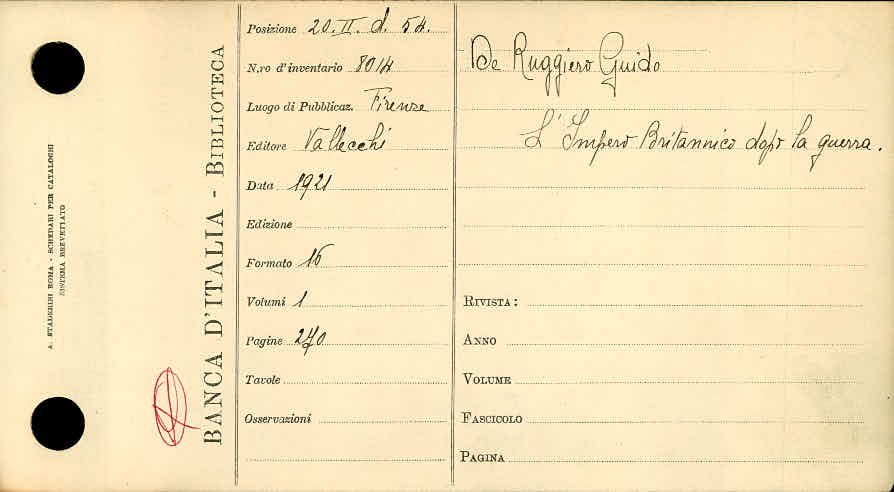 A. STADERINI ROMA - SCHEDARI PER CATALOGHI
SISTEMA BREVETTATO
BANCA D'ITALIA - BIBLIOTECA
Posizione 20. II. d. 54.
N.ro d'inventario 8014
Luogo di Pubblicaz. Firenze
Editore Vallecchi
Data 1921
Edizione
Formato 16
Volumi 1
Pagine 270
Tavole
Osservazioni
De Ruggiero Guido
L'Impero Britannico dopo la guerra.
RIVISTA:
ANNO
VOLUME
FASCICOLO
PAGINA